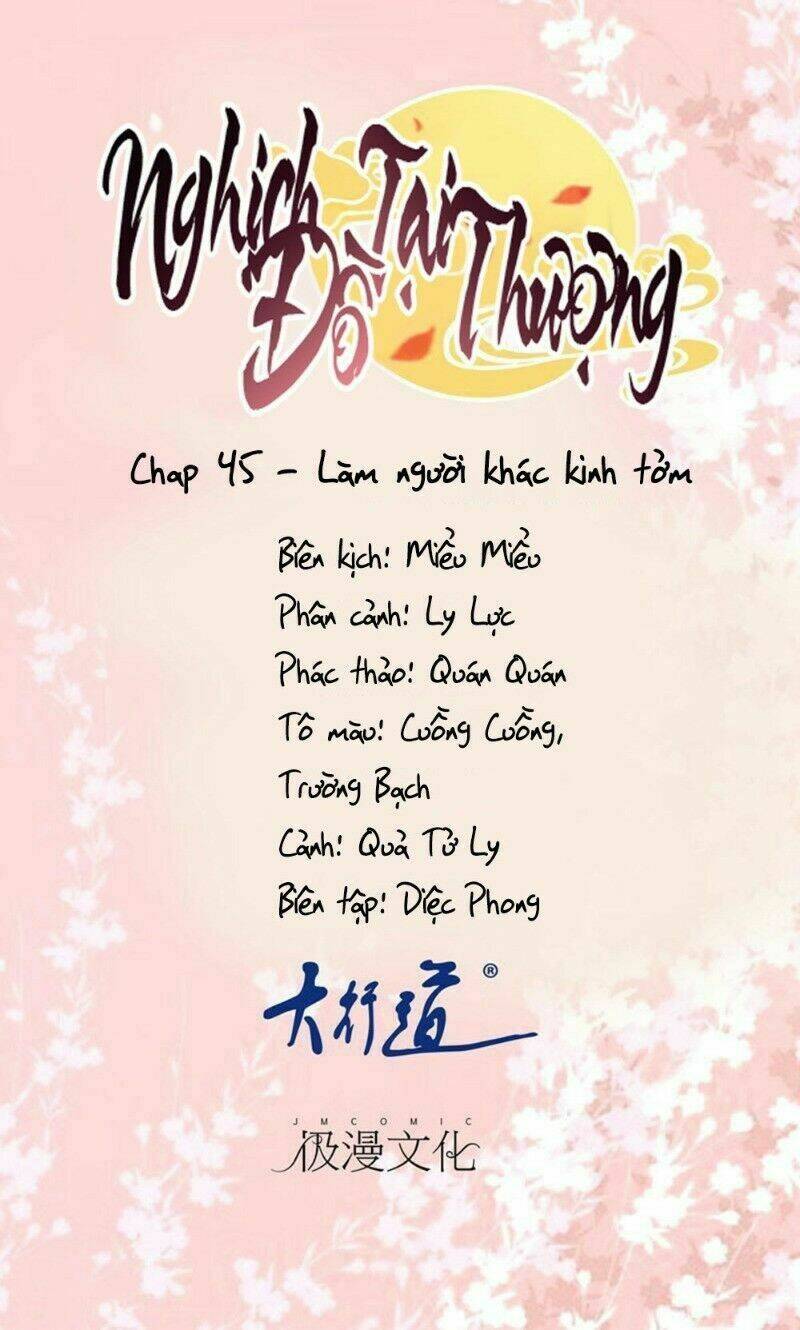 Nghịch Đồ Tại Thượng
Chap 45 - Làm người khác kinh tởm
Biên kịch! Miểu Miểu
Phân cảnh! Ly Lực
Phác thảo! Quán Quán
Tô màu! Cuồng Cuồng,
Trường Bạch
Cảnh! Quả Tử Ly
Biên tập! Diệc Phong
大行道®
JMCOMIC
极漫文化